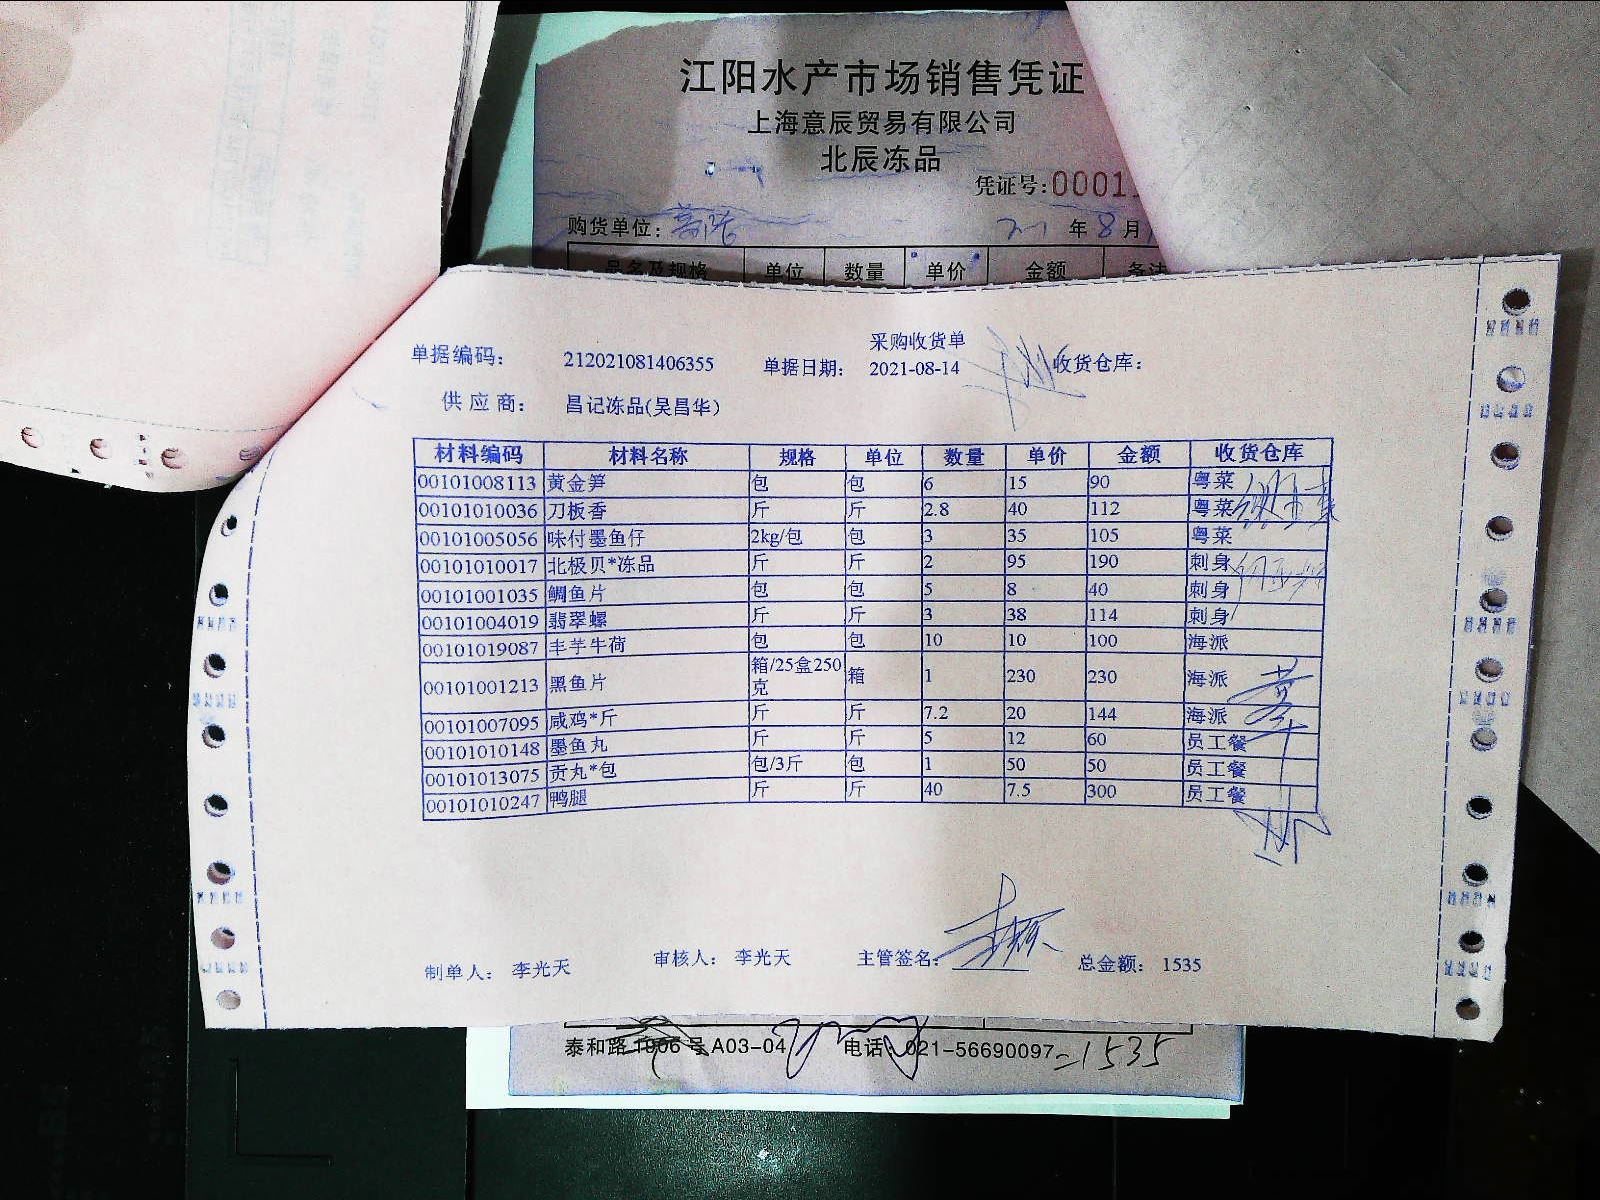 江阳水产市场销售凭证
上海意辰贸易有限公司
北辰冻品
凭证号:0001
购货单位: 年 8 月
品名及规格 单位 数量 单价 金额 备注
采购收货单
单据编码: 212021081406355 单据日期: 2021-08-14 收货仓库:
供应商: 昌记冻品(吴昌华)
材料编码 材料名称 规格 单位 数量 单价 金额 收货仓库
00101008113 黄金笋 包 包 6 15 90 粤菜
00101010036 刀板香 斤 斤 2.8 40 112 粤菜
00101005056 味付墨鱼仔 2kg/包 包 3 35 105 粤菜
00101010017 北极贝*冻品 斤 斤 2 95 190 刺身
00101001035 鲷鱼片 包 包 5 8 40 刺身
00101004019 翡翠螺 斤 斤 3 38 114 刺身
00101019087 丰芋牛荷 包 包 10 10 100 海派
00101001213 黑鱼片 箱/25盒250克 箱 1 230 230 海派
00101007095 咸鸡*斤 斤 斤 7.2 20 144 海派
00101010148 墨鱼丸 斤 斤 5 12 60 员工餐
00101013075 贡丸*包 包/3斤 包 1 50 50 员工餐
00101010247 鸭腿 斤 斤 40 7.5 300 员工餐
制单人: 李光天 审核人: 李光天 主管签名: 总金额: 1535
泰和路1906号A03-04 电话:021-56690097 =1535